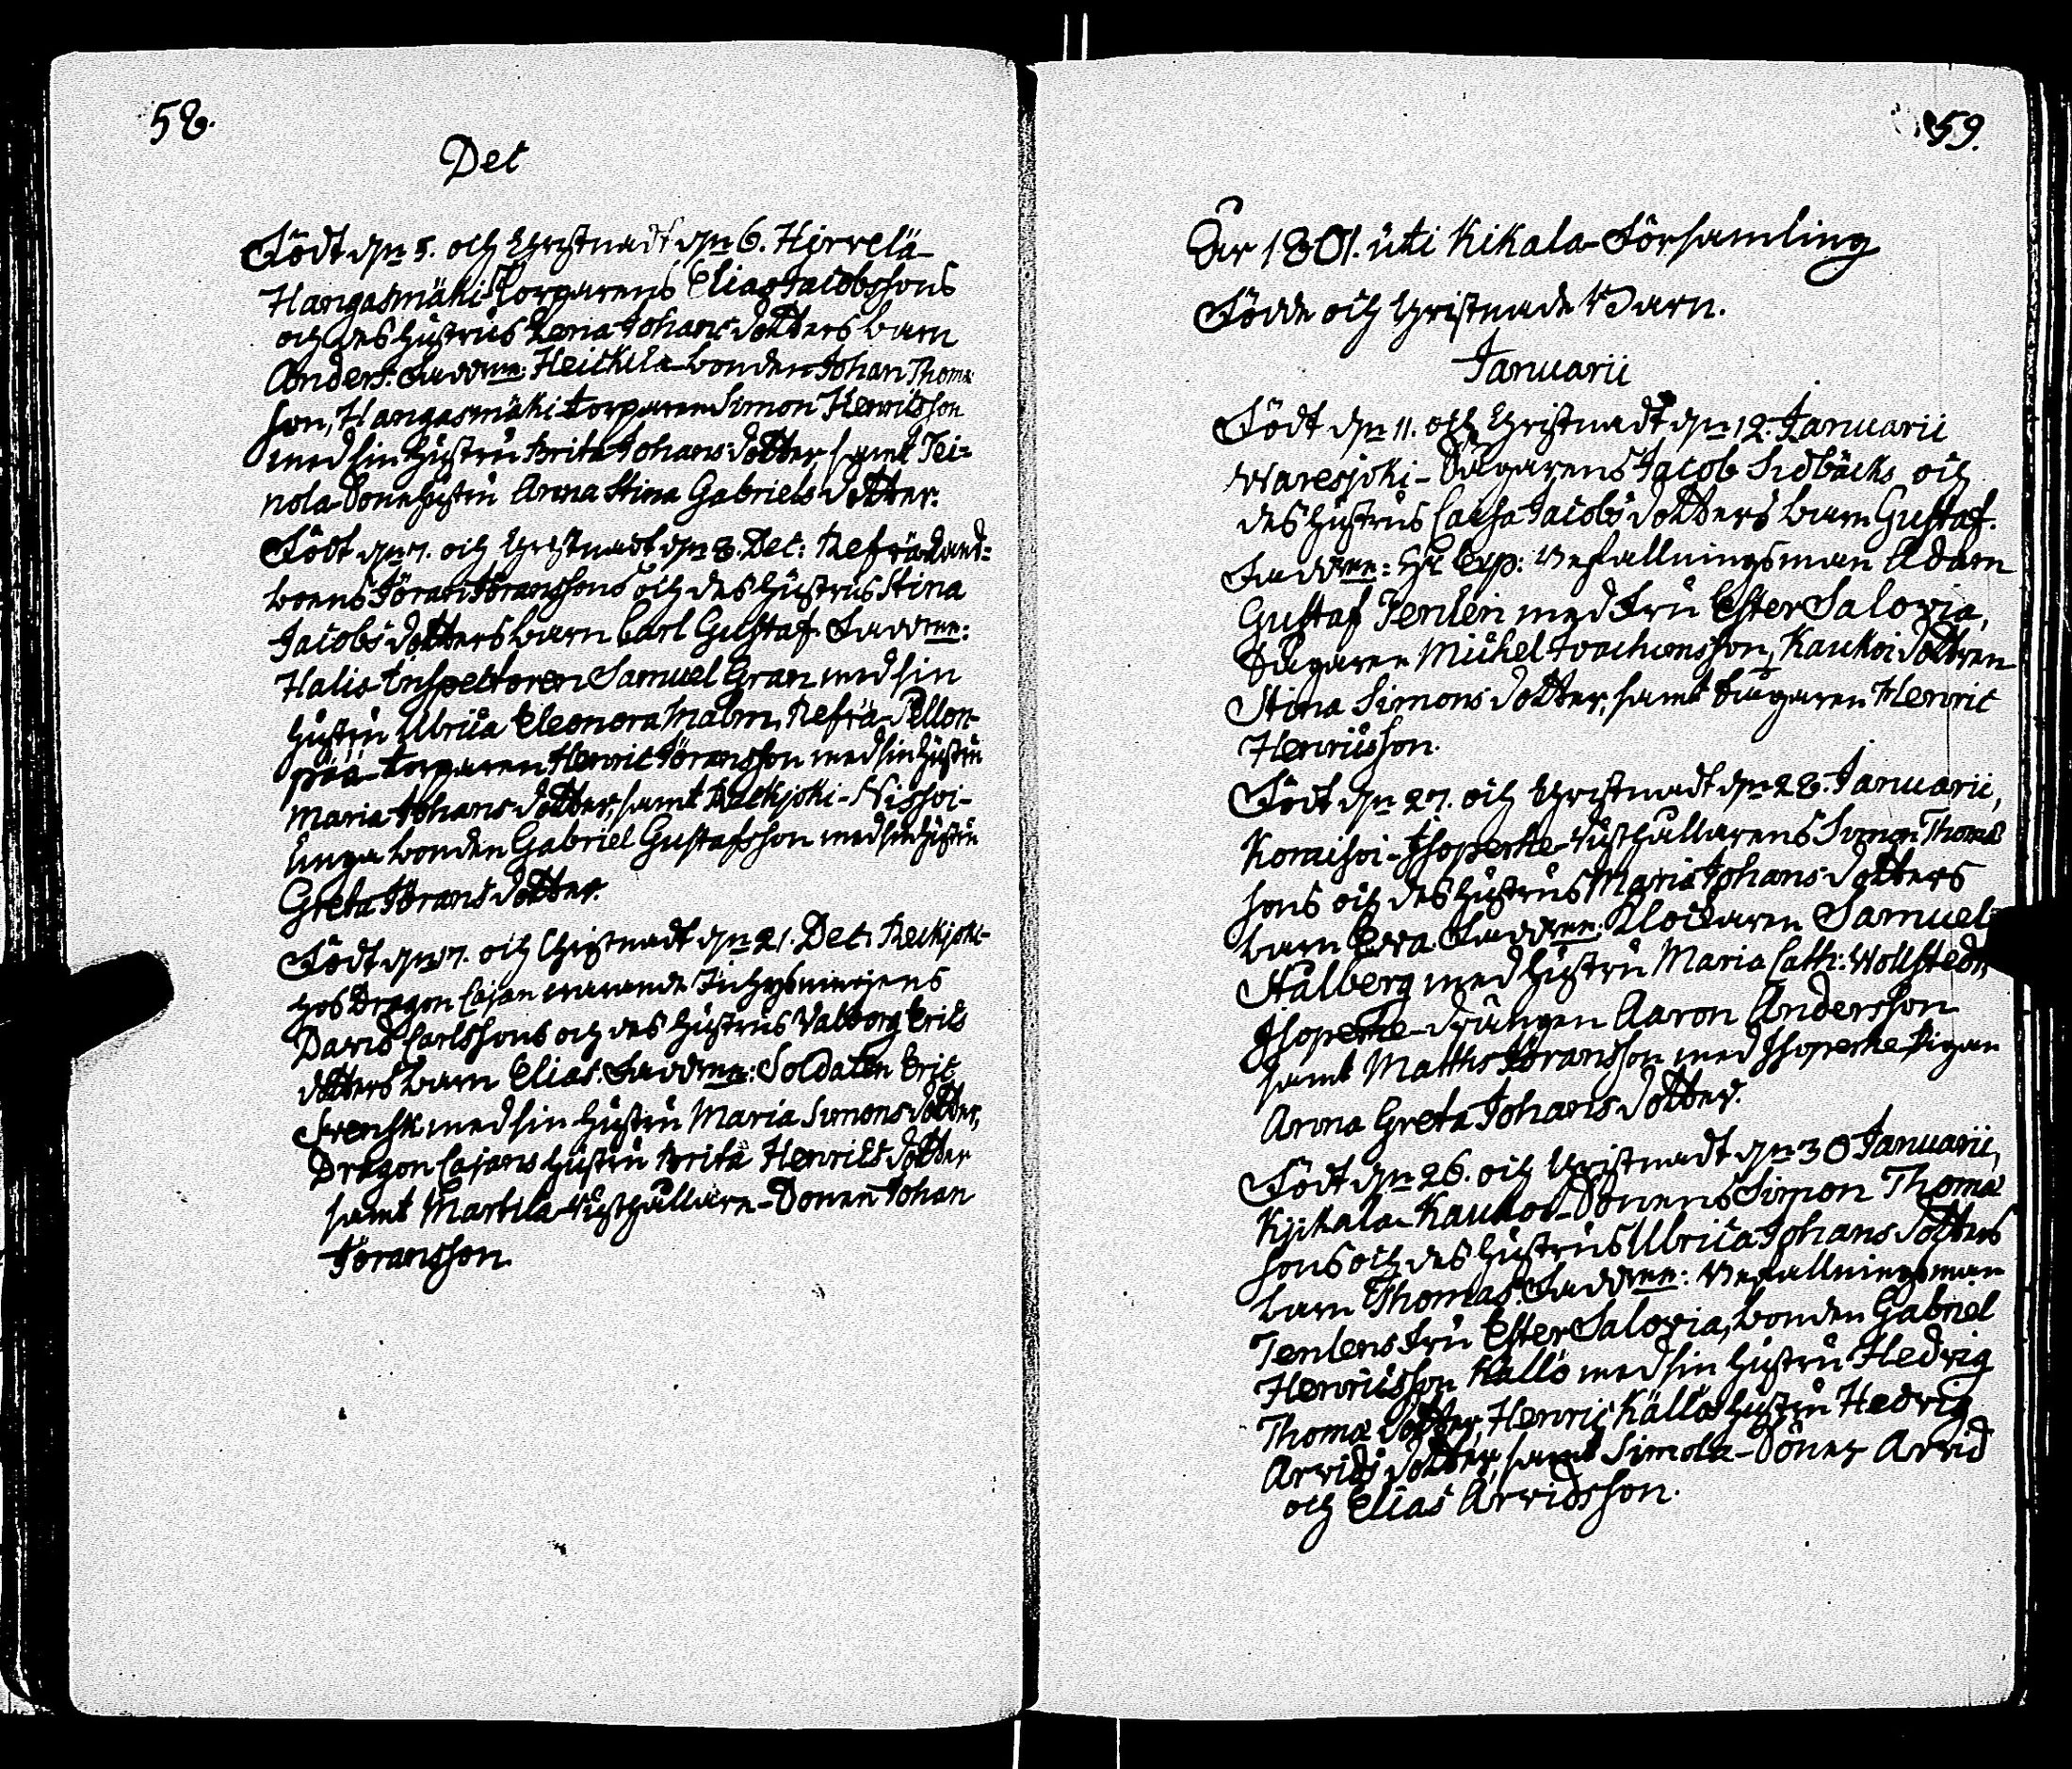 58.
Det
Födt dn 5. och Christnadt dn 6. Hirvelä-
Hangasmäki Torparens Elias Jacobssons
och des hustrus Lena Johans dotters barn
Anders. Faddrar: Heickilä-bonden Johan Thomæ
son, Hangasmäki torparen Simon Henricsson
med sin hustru Brita Johans dotter, samt Tei=
nola Sonehustru Anna Stina Gabriels dotter.
Födt dn 7. och Christnadt dn 8. Dec: Refrä Land=
boens Jöran Joranssons och des hustrus Stina
Jacobs dotters barn Carl Gustaf. Faddrar:
Halis Inspectoren Samuel Gran med sin
hustru Ulrica Eleonora Malm, Refrä-Pellon-
pää-torparen Henric Joransson med sin hustru
Maria Johans dotter, samt Reckjoki-Nissoi-
unga bonden Gabriel Gustafsson med sin hustru
Greta Jörans dotter.
Födt dn 17. och Christnadt dn 21. Dec. Reckjoki-
hos Dragon Cajan warande
David Carlssons och des hustrus Valborg Erics
dotters barn Elias. Faddrar: Soldaten Eric
Frensk med sin hustru Maria Simons dotter,
Dragon Cajans hustru Brita Henrics dotter
samt Martila-Rusthållare-Sonen Johan
Joransson.
59.
År 1801. uti Kikala-Församling
Födde och Christnade Barn.
Januarii
Födt dn 11. och Christnadt dn 12. Januarii
Waresjoki-Sågarens Jacob Sidbäcks och
des hustrus Caisa Jacobs dotters barn Gustaf.
Faddrar: Hr Exp: Befallningsman Adam
Gustaf Tenlen med Fru Ester Salovia,
Sågaren Michel Joachimsson, Kaukoi dottren
Stina Simons dotter, samt Sågaren Henric
Henricsson.
Födt dn 27. och Christnadt dn 28. Januarii,
Komisoi-Isoperhe-Rusthållarens Simon Thomæ
sons och des hustrus Maria Johans dotters
barn Eva. Faddrar: Klockaren Samuel
Stålberg med hustru Maria Cath: Wollstedt,
Isoperhe-drängen Aaron Andersson
samt Matths Joransson med Isoperhe Pigan
Anna Greta Johans dotter.
Födt dn 26. och Christnadt dn 30 Januarii,
Kijkala-Kaukoi-Sonens Simon Thomæ
sons och des hustrus Ulrica Johans dotters
barn Thomas. Faddrar: Befallningsman
Tenlens Fru Ester Salovia, bonden Gabriel
Henricsson Kallo med sin hustru Hedvig
Thomæ dotter, Henric Källos hustru Hedvig
Arvids dotter, samt Simola-Söner Arvid
och Elias Arvidsson.